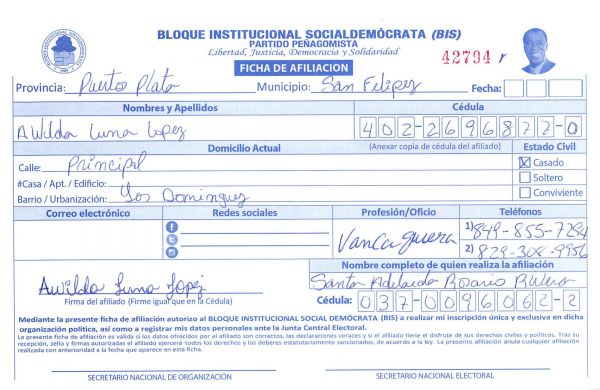 BLOQUE INSTITUCIONAL SOCIALDEMÓCRATA (BIS)
PARTIDO PEÑAGOMISTA
Libertad, Justicia, Democracia y Solidaridad
42794 r
FICHA DE AFILIACION
Provincia: Puerto Plata Municipio: San Felipez Fecha:
Nombres y Apellidos Cédula
Awilda Luna Lopez 402-2696877-0
Domicilio Actual (Anexar copia de cédula del afiliado) Estado Civil
Calle: Principal X Casado
#Casa / Apt. / Edificio: Soltero
Barrio / Urbanización: Los Dominguez Conviviente
Correo electrónico Redes sociales Profesión/Oficio Teléfonos
Vancaguera 1) 849-855-7284
2) 829-308-9956
Nombre completo de quien realiza la afiliación
Awilda Luna Lopez Santa Adelaida Rosario Rivera
Firma del afiliado (Firme igual que en la Cédula) Cédula: 037-0096062-2
Mediante la presente ficha de afiliación autorizo al BLOQUE INSTITUCIONAL SOCIAL DEMÓCRATA (BIS) a realizar mi inscripción única y exclusiva en dicha
organización política, así como a registrar mis datos personales ante la Junta Central Electoral.
La presente ficha de afiliación es válida si los datos ofrecidos por el afiliado son correctos, las declaraciones veraces y si el afiliado tiene el disfrute de sus derechos civiles y políticos. Tras su
recepción, sello y firmas autorizadas el afiliado ejercerá todos los derechos y los deberes estatutariamente sancionados, de acuerdo a la ley. La presente afiliación anula cualquier afiliación
realizada con anterioridad a la fecha que aparece en esta ficha.
SECRETARIO NACIONAL DE ORGANIZACIÓN SECRETARIO NACIONAL ELECTORAL